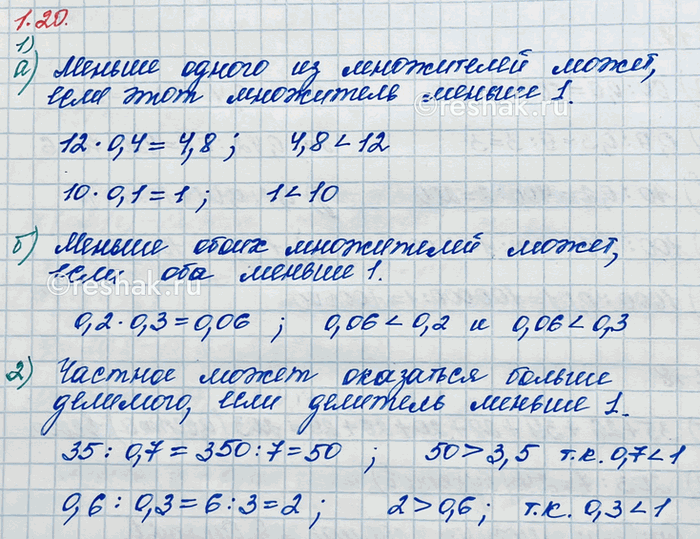 1.20.
1)
а) Меньше одного из множителей может,
если этот множитель меньше 1.
12 · 0,4 = 4,8 ; 4,8 < 12
10 · 0,1 = 1 ; 1 < 10
б) Меньше обоих множителей может,
если оба меньше 1.
0,2 · 0,3 = 0,06 ; 0,06 < 0,2 и 0,06 < 0,3
2) Частное может оказаться больше
делимого, если делитель меньше 1.
35 : 0,7 = 350 : 7 = 50 ; 50 > 3,5 т.к. 0,7 < 1
0,6 : 0,3 = 6 : 3 = 2 ; 2 > 0,6 ; т.к. 0,3 < 1
©reshak.ru
©reshak.ru
©reshak.ru